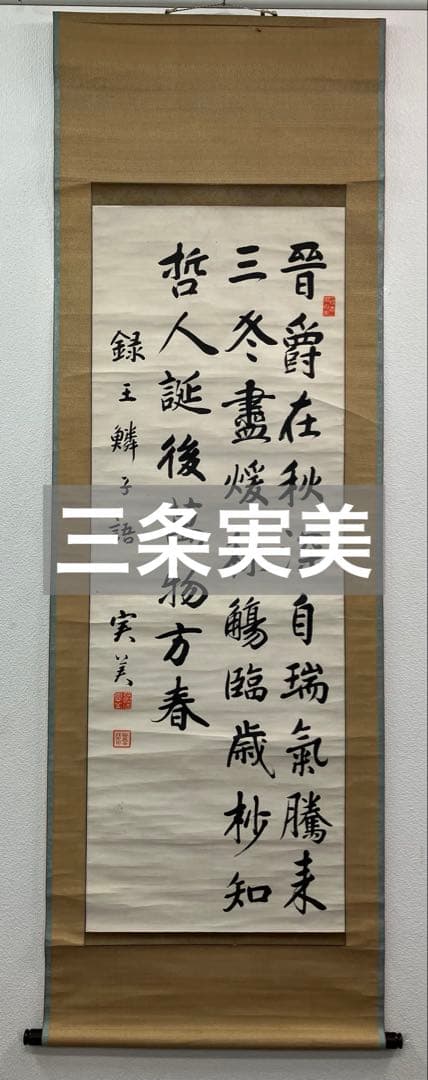 晉爵在秋深自瑞氣騰来
三冬盡煖称觴臨歳杪知
哲人誕後萬物方春
録王鱗子語 実美
三条実美